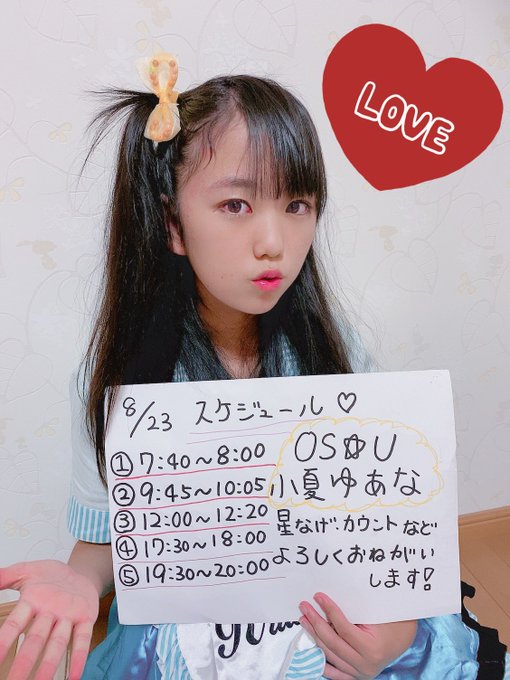 LOVE
8/23 スケジュール♡
①7:40～8:00
②9:45～10:05
③12:00～12:20
④17:30～18:00
⑤19:30～20:00
OS☆U
小夏ゆあな
星なげ、カウントなど
よろしくおねがい
します!